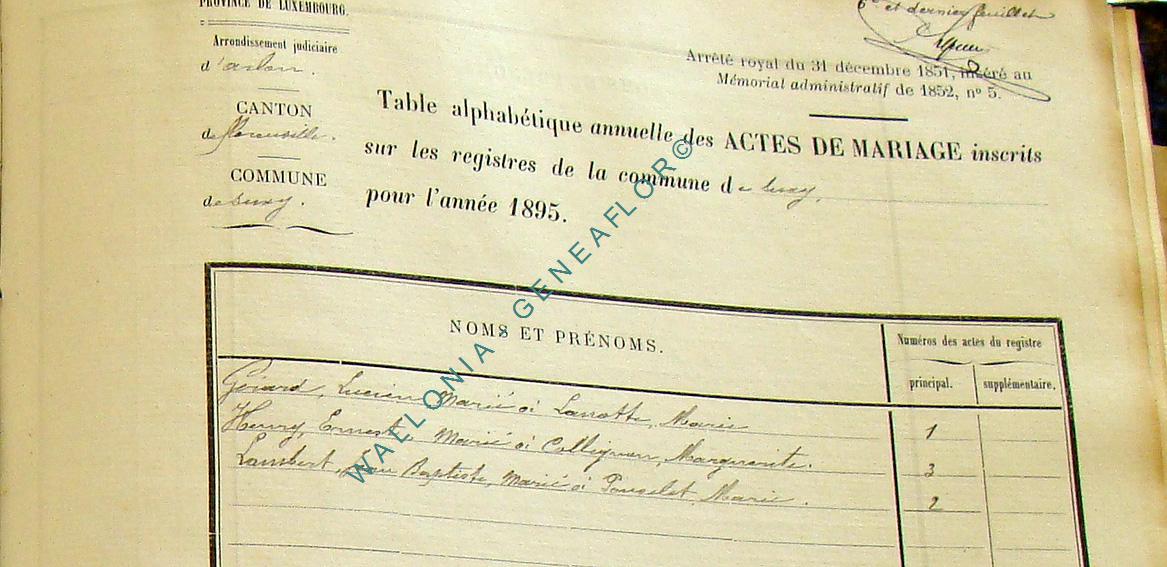 PROVINCE DE LUXEMBOURG.
Arrondissement judiciaire
d'arlon.
CANTON
de Florenville.
COMMUNE
de Suxy.
6e et dernier feuillet
Arrêté royal du 31 décembre 1851, inséré au
Mémorial administratif de 1852, nº 5.
Table alphabétique annuelle des ACTES DE MARIAGE inscrits
sur les registres de la commune de Suxy.
pour l'année 1895.
NOMS ET PRÉNOMS.
Numéros des actes du registre
principal. supplémentaire.
Gérard, Lucien Marié à Lanotte, Marie 1
Henry, Ernest, Marié à Collignon, Marguerite. 3
Lambert, Jean Baptiste, Marié à Poncelet, Marie. 2
WALLONIA - GENEAFLOR©